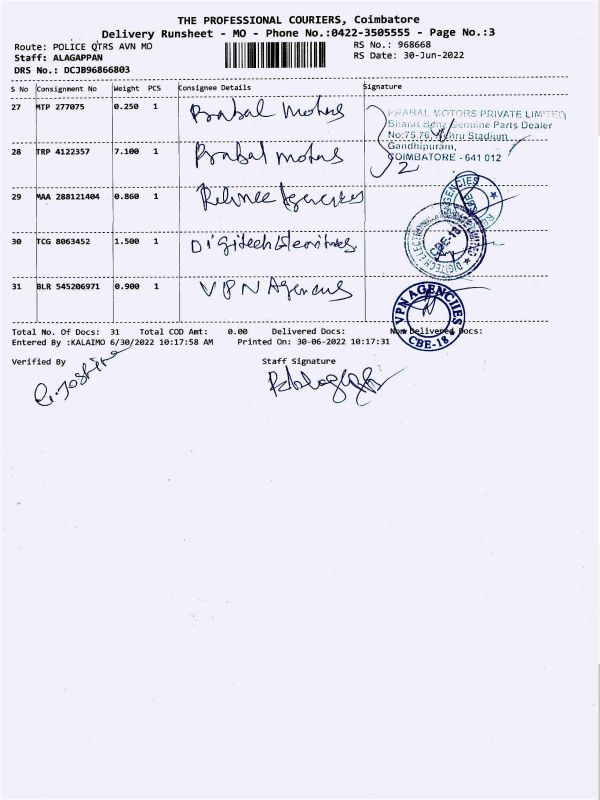 THE PROFESSIONAL COURIERS, Coimbatore
Delivery Runsheet - MO - Phone No.:0422-3505555 - Page No.:3
Route: POLICE QTRS AVN MO RS No.: 968668
Staff: ALAGAPPAN RS Date: 30-Jun-2022
DRS No.: DCJB96866803
S No Consignment No Weight PCS Consignee Details Signature
27 MTP 277075 0.250 1 Prabal Motors
PRABAL MOTORS PRIVATE LIMITED
Bharat Benz Genuine Parts Dealer
No:75,76, Nehru Stadium
Gandhipuram,
COIMBATORE - 641 012
28 TRP 4122357 7.100 1 Prabal motors
29 MAA 288121404 0.860 1 Reliance Agencies
AGENCIES
30 TCG 8063452 1.500 1 Digitech
CBE-18
31 BLR 545206971 0.900 1 VPN Agencies
VPN AGENCIIES
CBE-18
Total No. Of Docs: 31 Total COD Amt: 0.00 Delivered Docs: Non Delivered Docs:
Entered By :KALAIMO 6/30/2022 10:17:58 AM Printed On: 30-06-2022 10:17:31
Verified By Staff Signature